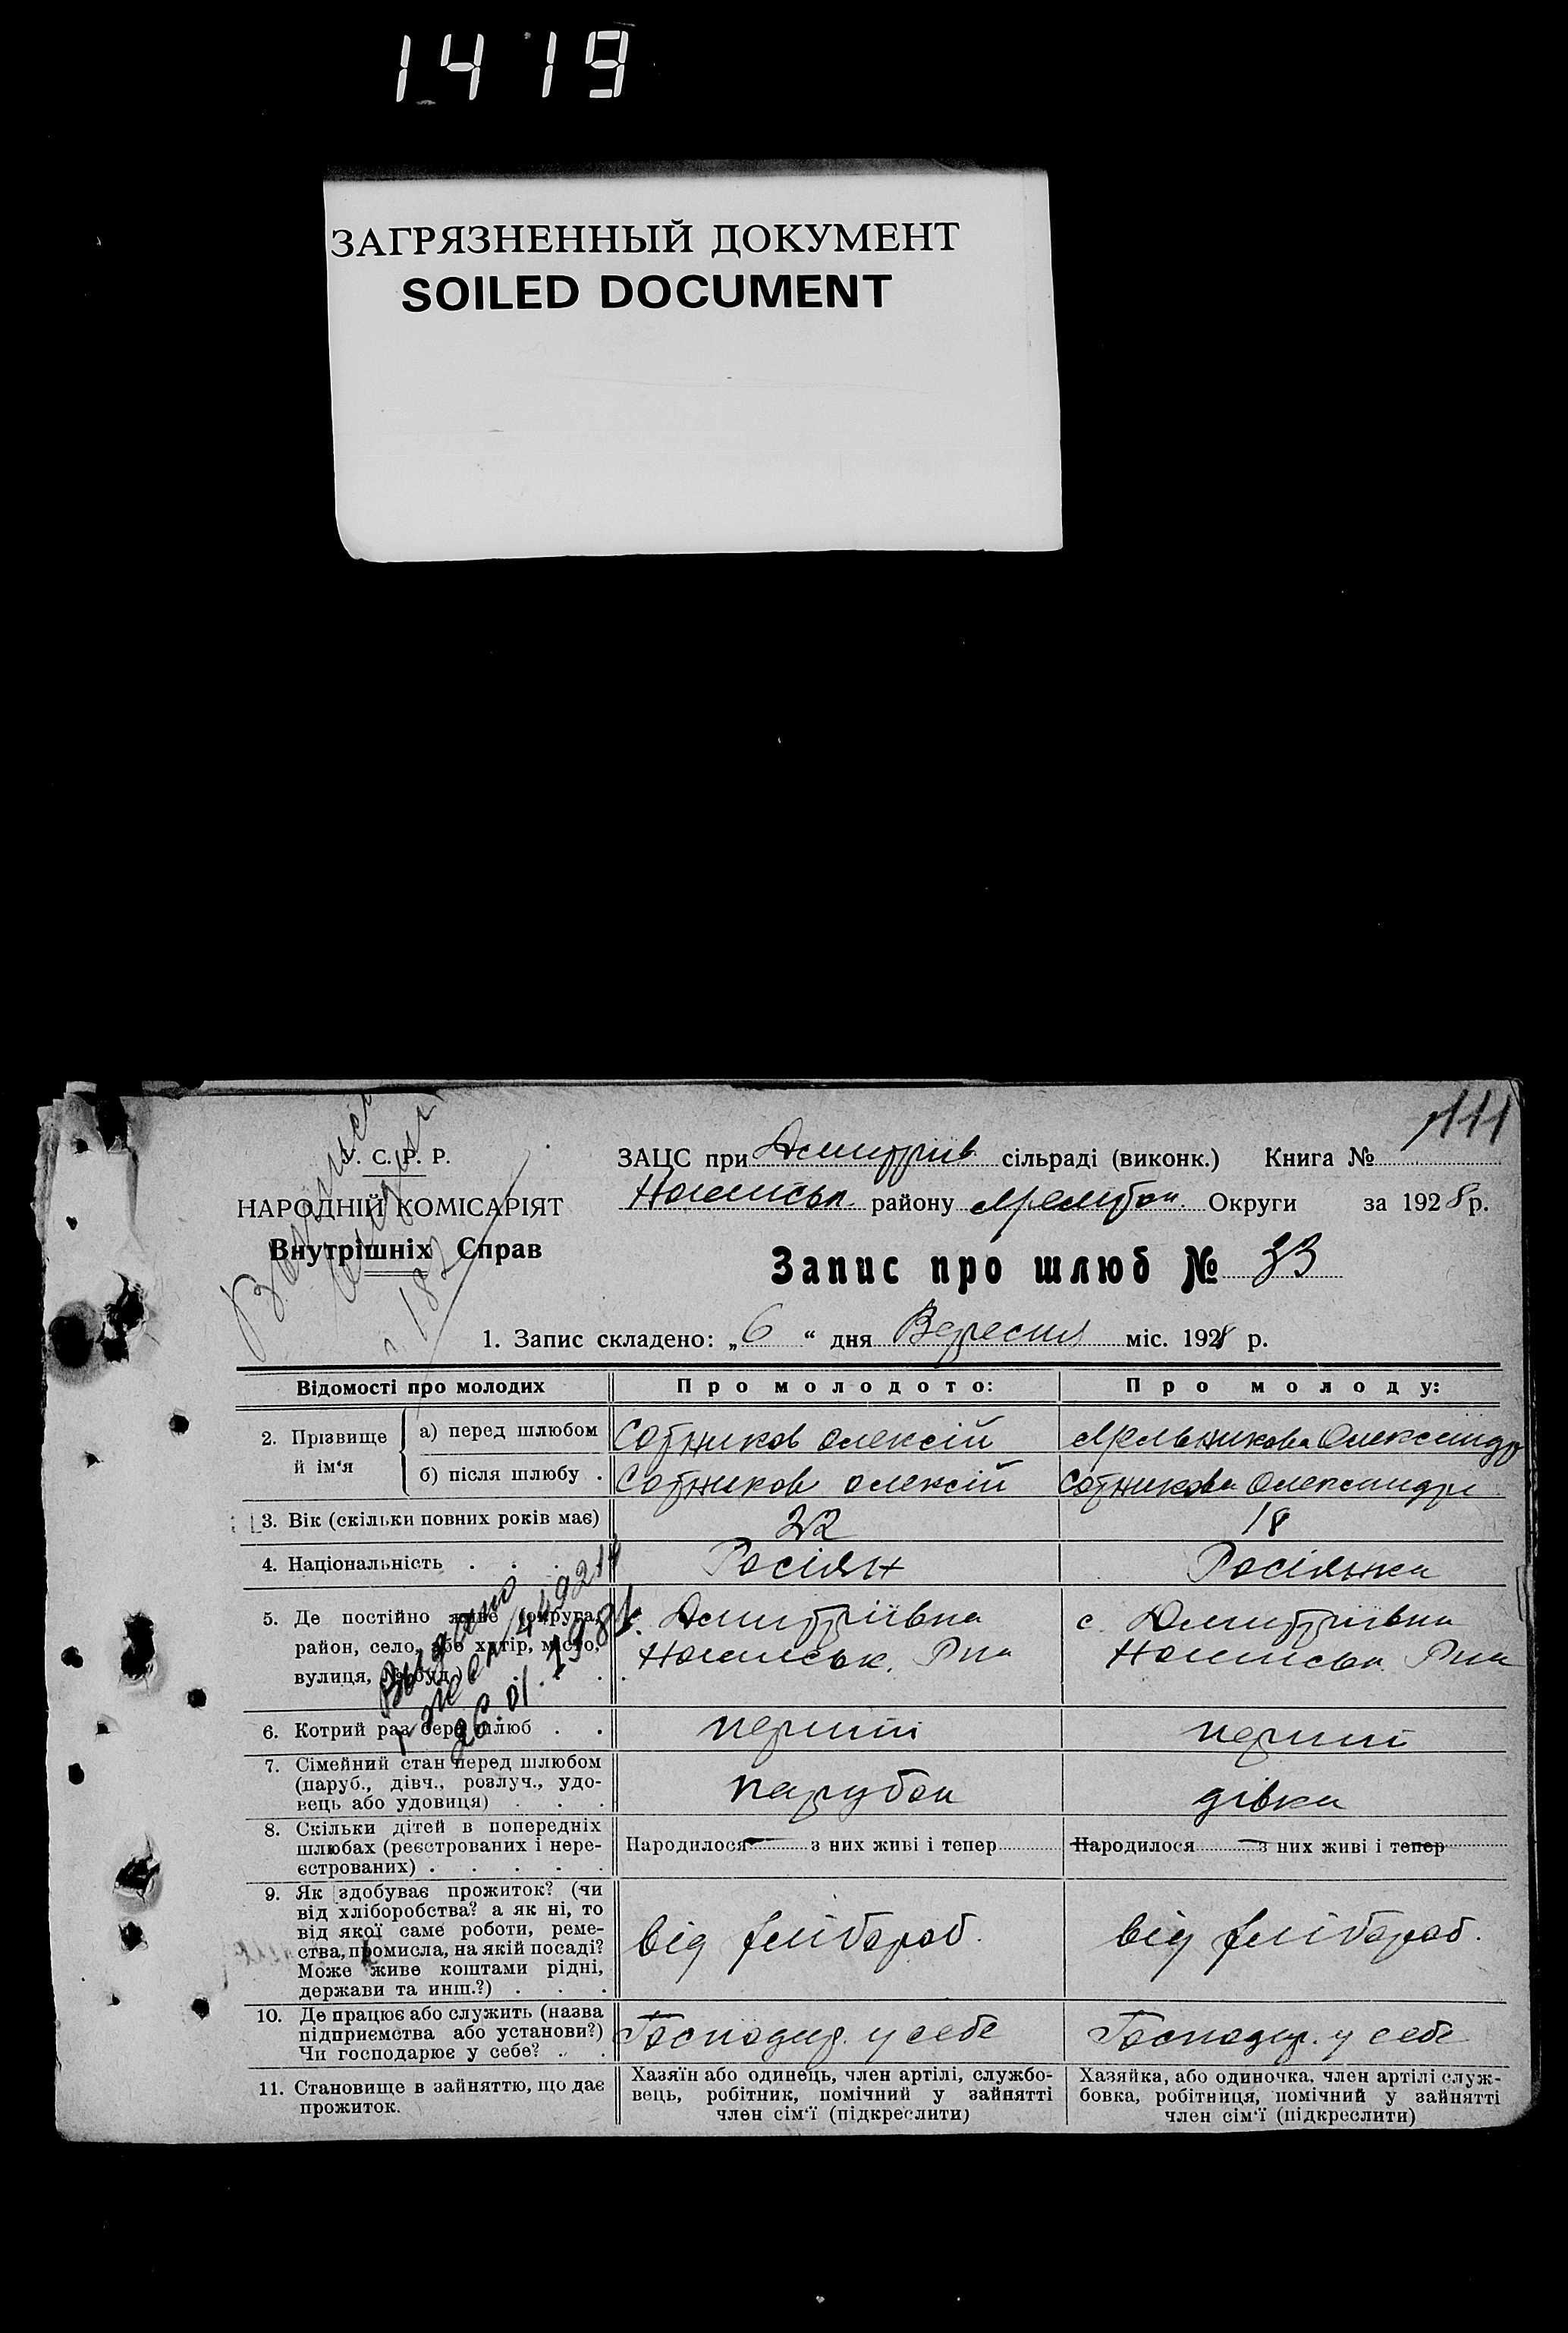 1419
ЗАГРЯЗНЕННЫЙ ДОКУМЕНТ
SOILED DOCUMENT
111
С. Р. Р.
НАРОДНІЙ КОМІСАРІЯТ
Внутрішніх Справ
ЗАЦС при Дмитріїв. сільраді (виконк.) Книга №
району Округи за 1928 р.
Запис про шлюб № 33
1. Запис складено: „6“ дня Вересня міс. 1928 р.
Відомості про молодих Про молодого: Про молоду:
2. Прізвище й ім'я
а) перед шлюбом Сотников Олексій Мельникова Олександр
б) після шлюбу . Сотников Олексій Сотникова Олександра
3. Вік (скільки повних років має) 22 18
4. Національність . . . Росіян Росіянка
5. Де постійно живе (округа, с. Дмитріївка с. Дмитріївка
район, село, або хутір, місто, Р-на Р-на
вулиця, № буд.) . . .
Видано
26.01.1981
6. Котрий раз бере шлюб . . перший перший
7. Сімейний стан перед шлюбом
(паруб., дівч., розлуч., удо-
вець або удовиця) . . . парубок дівка
8. Скільки дітей в попередніх
шлюбах (реєстрованих і нере-
єстрованих) . . . . . Народилося — з них живі і тепер Народилося — з них живі і тепер
9. Як здобуває прожиток? (чи
від хліборобства? а як ні, то
від якої саме роботи, реме-
ства, промисла, на якій посаді?
Може живе коштами рідні,
держави та инш.?) . . . від хлібороб. від хлібороб.
10. Де працює або служить (назва
підприємства або установи?)
Чи господарює у себе? . . Господар. у себе Господар. у себе
11. Становище в зайняттю, що дає
прожиток.
Хазяїн або одинець, член артілі, службо-
вець, робітник, помічний у зайнятті
член сім'ї (підкреслити)
Хазяйка, або одиночка, член артілі служ-
бовка, робітниця, помічний у зайнятті
член сім'ї (підкреслити)